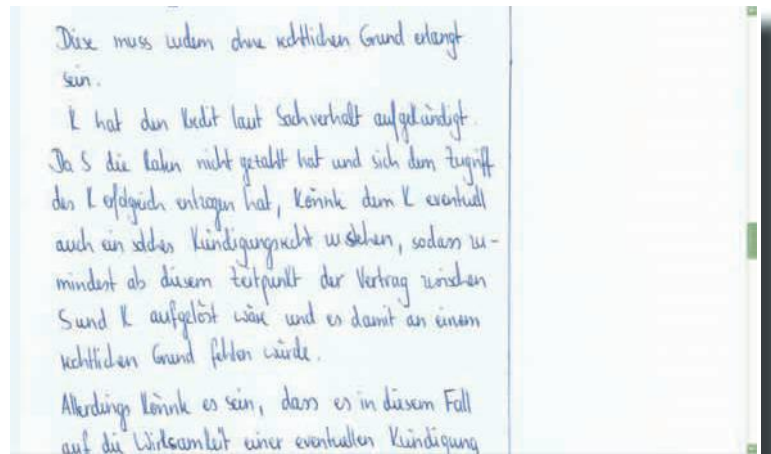 Diese muss zudem ohne rechtlichen Grund erlangt
sein.
K hat den Kredit laut Sachverhalt aufgekündigt.
Da S die Raten nicht gezahlt hat und sich dem Zugriff
des K erfolgreich entzogen hat, könnte dem K eventuell
auch ein solches Kündigungsrecht zustehen, sodass zu-
mindest ab diesem Zeitpunkt der Vertrag zwischen
S und K aufgelöst wäre und es damit an einem
rechtlichen Grund fehlen würde.
Allerdings könnte es sein, dass es in diesem Fall
auf die Wirksamkeit einer eventuellen Kündigung